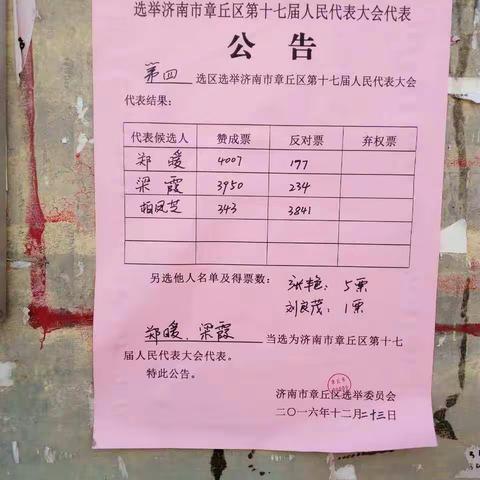 选举济南市章丘区第十七届人民代表大会代表
公告
第四 选区选举济南市章丘区第十七届人民代表大会
代表结果：
代表候选人 赞成票 反对票 弃权票
郑暖 4007 177
梁霞 3950 234
柏凤芝 343 3841
另选他人名单及得票数： 张艳：5票
刘良茂：1票
郑暖、梁霞 当选为济南市章丘区第十七
届人民代表大会代表。
特此公告。
济南市章丘区选举委员会
二〇一六年十二月二十三日